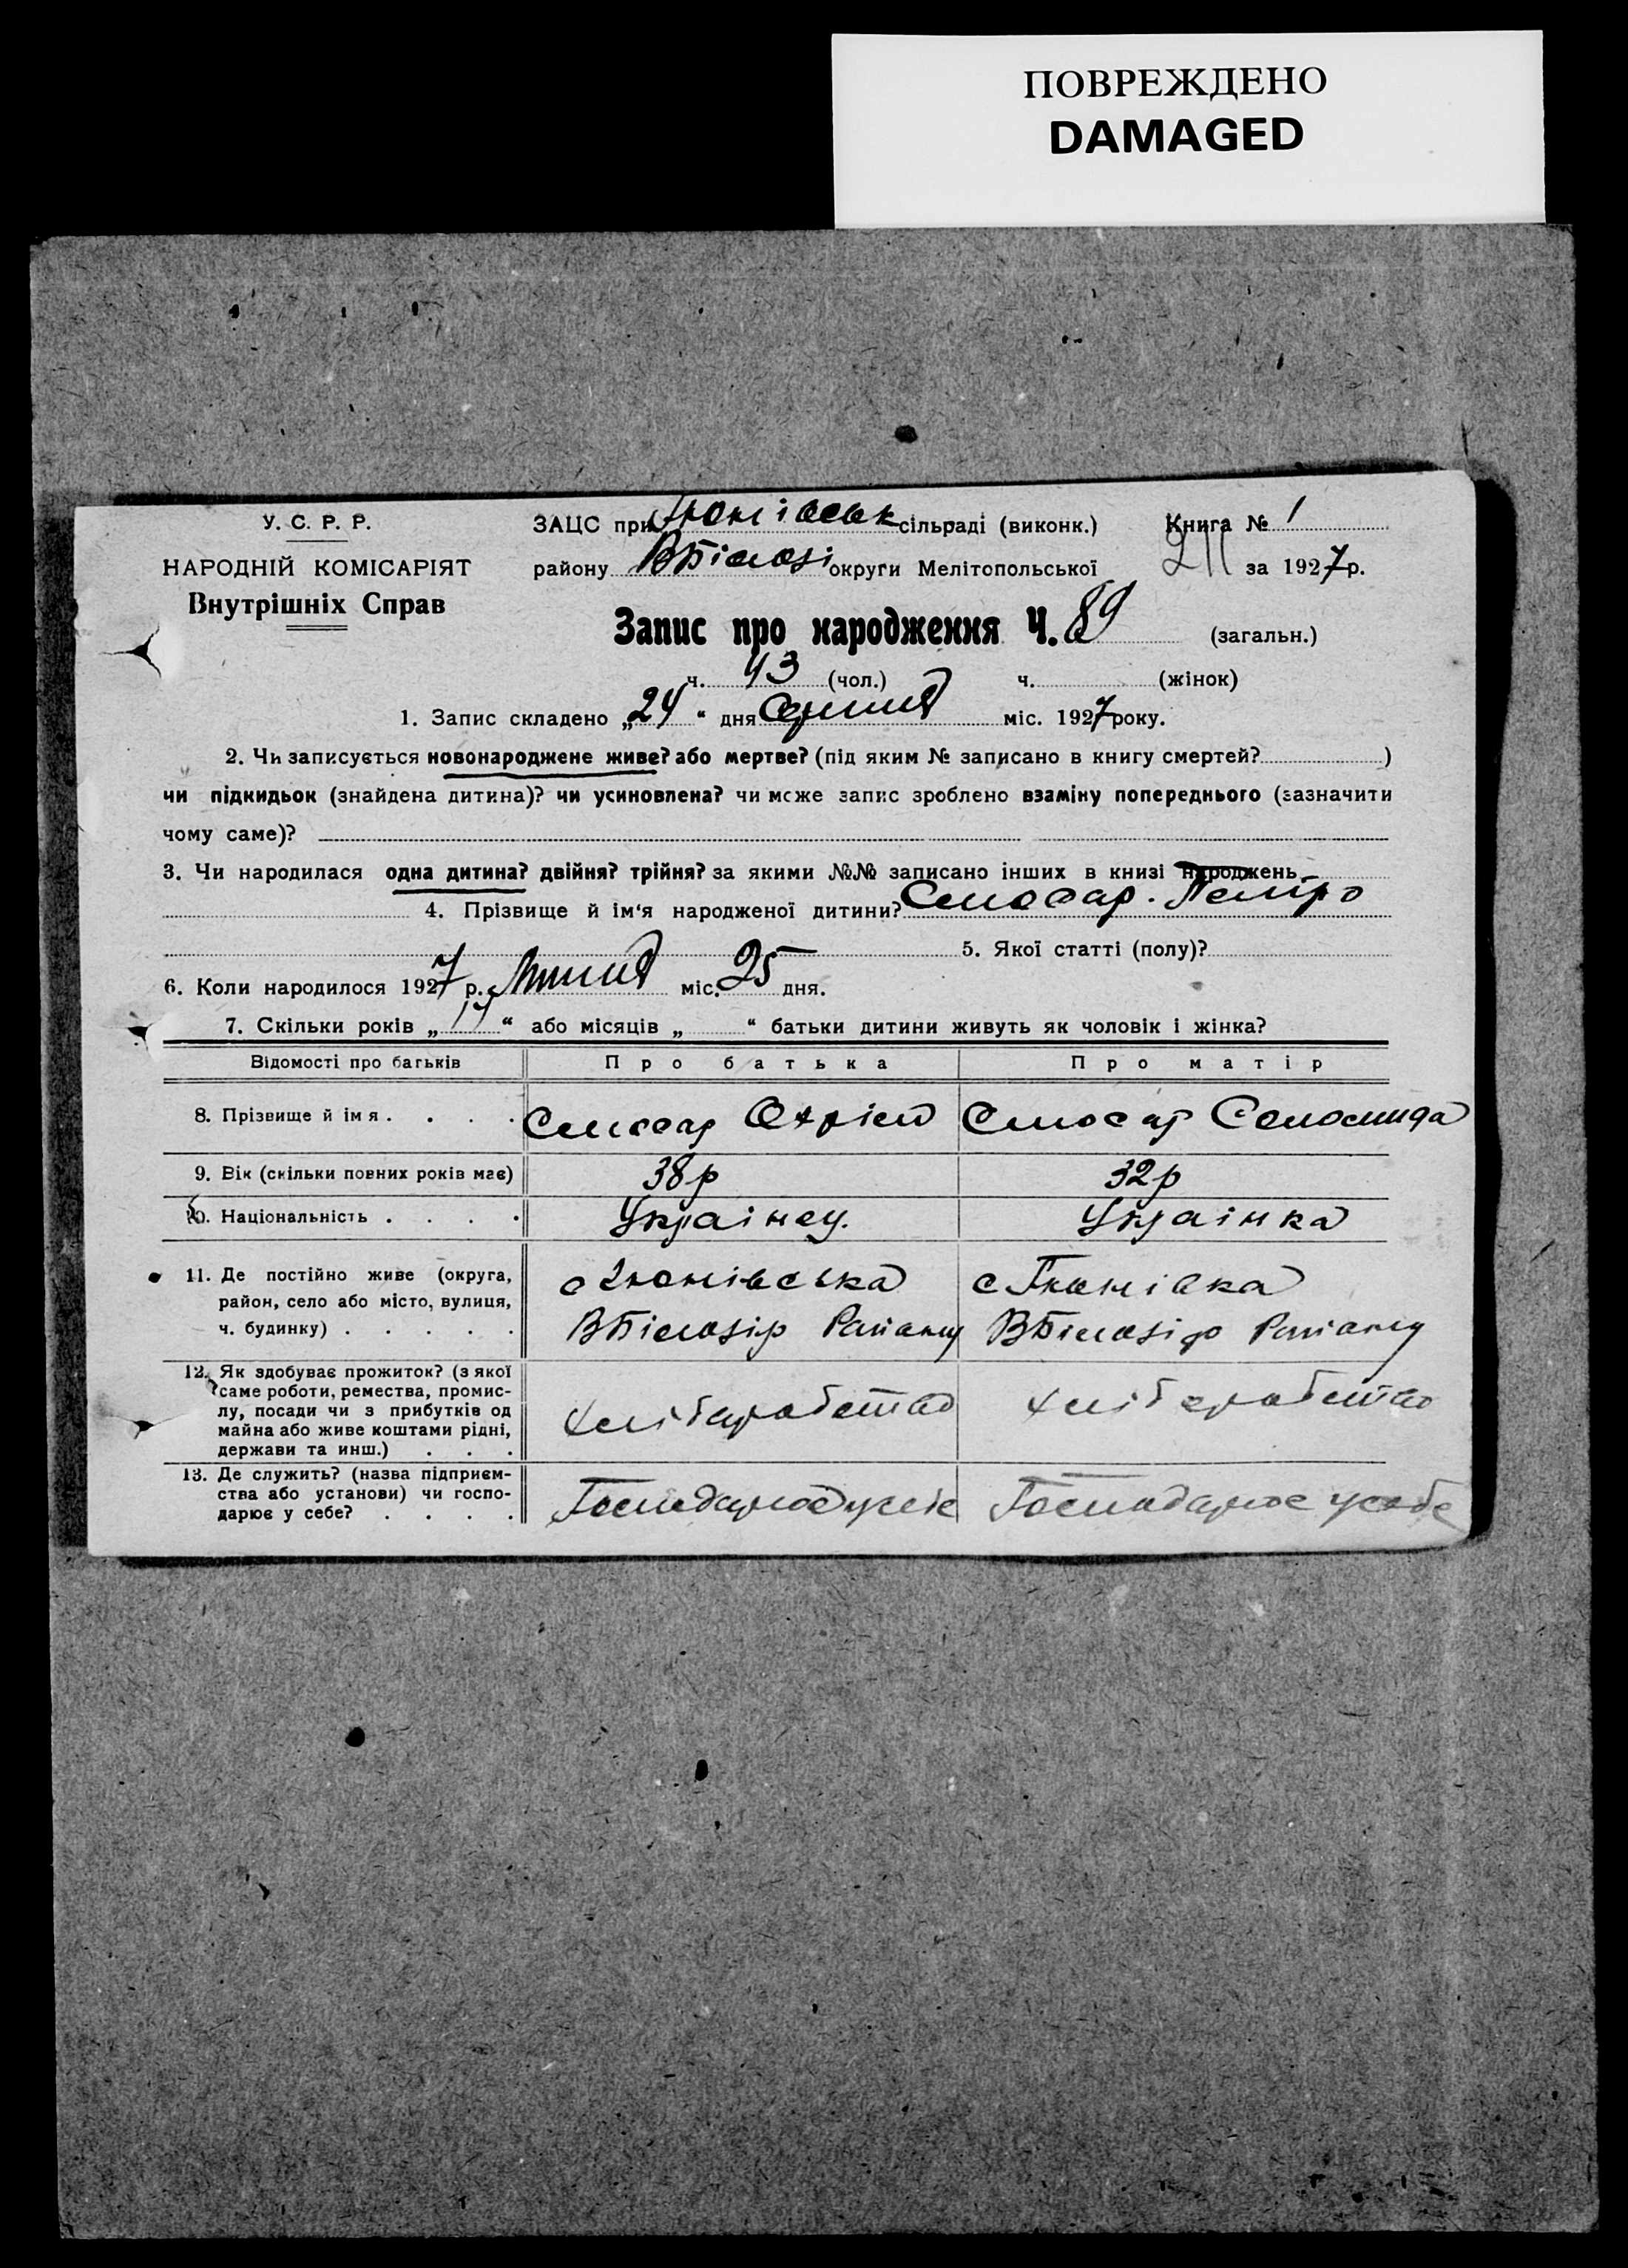 ПОВРЕЖДЕНО
DAMAGED
У. С. Р. Р.
НАРОДНІЙ КОМІСАРІЯТ
Внутрішніх Справ
ЗАЦС при Тюнівськ сільраді (виконк.) Книга № 1
району ВБілозі округи Мелітопольської 211 за 1927 р.
Запис про народження Ч. 89 (загальн.)
ч. 43 (чол.) ч. (жінок)
1. Запис складено „24“ дня Серпня міс. 1927 року.
2. Чи записується новонароджене живе? або мертве? (під яким № записано в книгу смертей? )
чи підкидьок (знайдена дитина)? чи усиновлена? чи може запис зроблено взаміну попереднього (зазначити
чому саме)?
3. Чи народилася одна дитина? двійня? трійня? за якими №№ записано інших в книзі народжень
4. Прізвище й ім‘я народженої дитини? Слюсар. Петро
5. Якої статті (полу)?
6. Коли народилося 1927 р. Липня міс. 25 дня.
7. Скільки років „ “ або місяців „ “ батьки дитини живуть як чоловік і жінка?
Відомості про батьків Про батька Про матір
8. Прізвище й імя . . . . Слюсар Охрім Слюсар Соломида
9. Вік (скільки повних років має) 38р 32р
10. Національність . . . . Українец. Українка
11. Де постійно живе (округа, с Тюнівська с Тюнівка
район, село або місто, вулиця,
ч. будинку) . . . . . ВБілозір Району ВБілозір Району
12. Як здобуває прожиток? (з якої
саме роботи, ремества, промис-
лу, посади чи з прибутків од хліборобство хліборобство
майна або живе коштами рідні,
держави та инш.) . . .
13. Де служить? (назва підприєм-
ства або установи) чи госпо- Господарює Господарює усебе
дарює у себе? . . . .